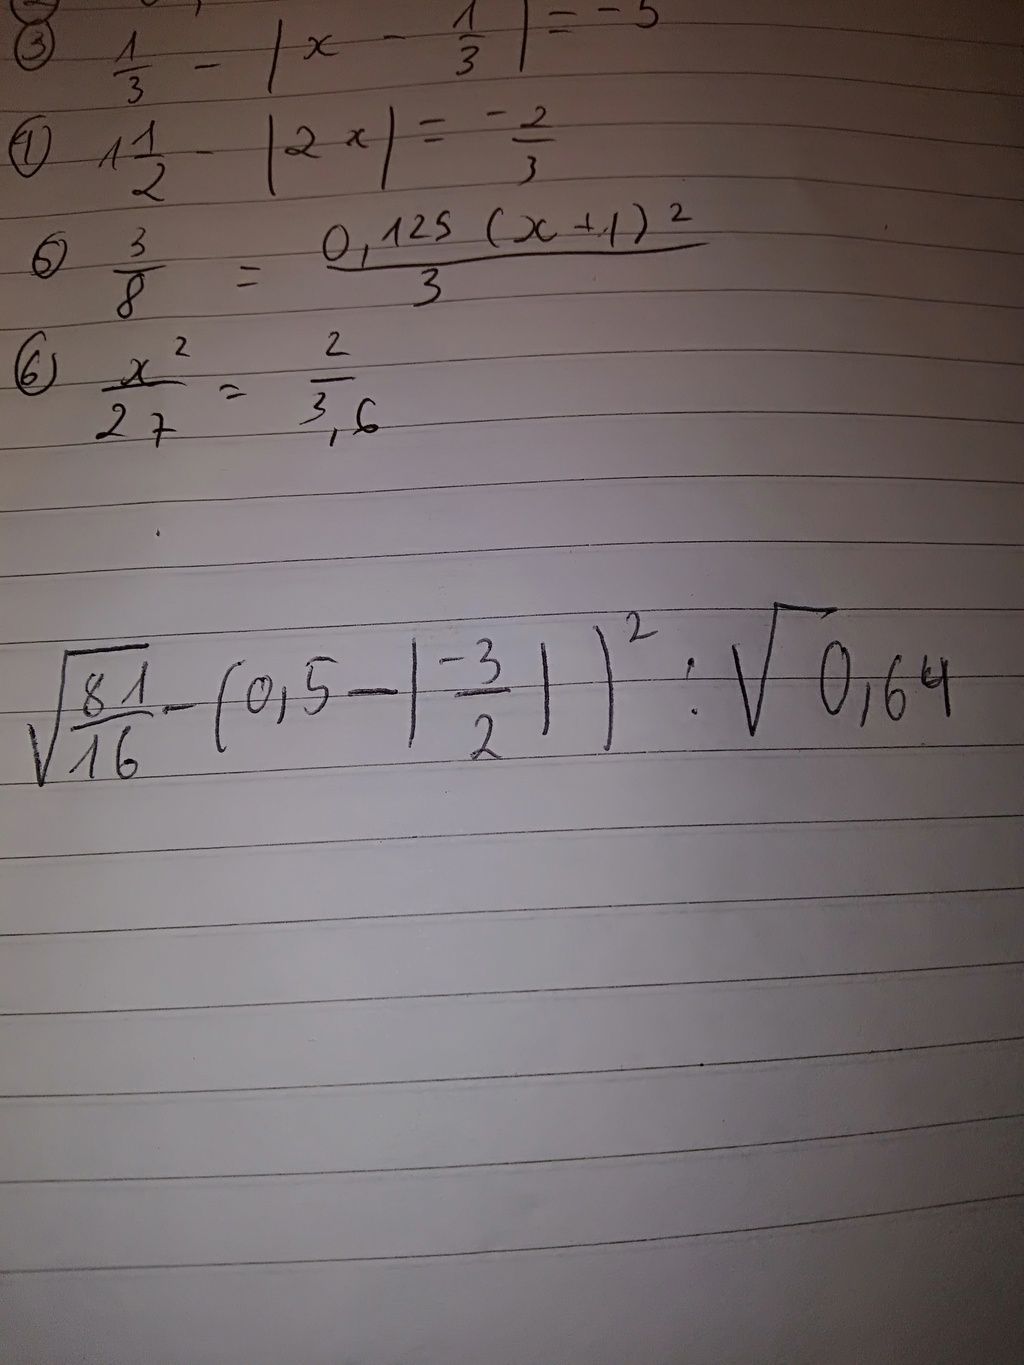 ③ 1/3 - |x - 1/3| = -5
① 1 1/2 - |2x| = -2/3
⑥ 3/8 = 0,125 (x+1)²/3
⑥ x²/27 = 2/3,6
√81/16 - (0,5 - |-3/2|)² : √0,64